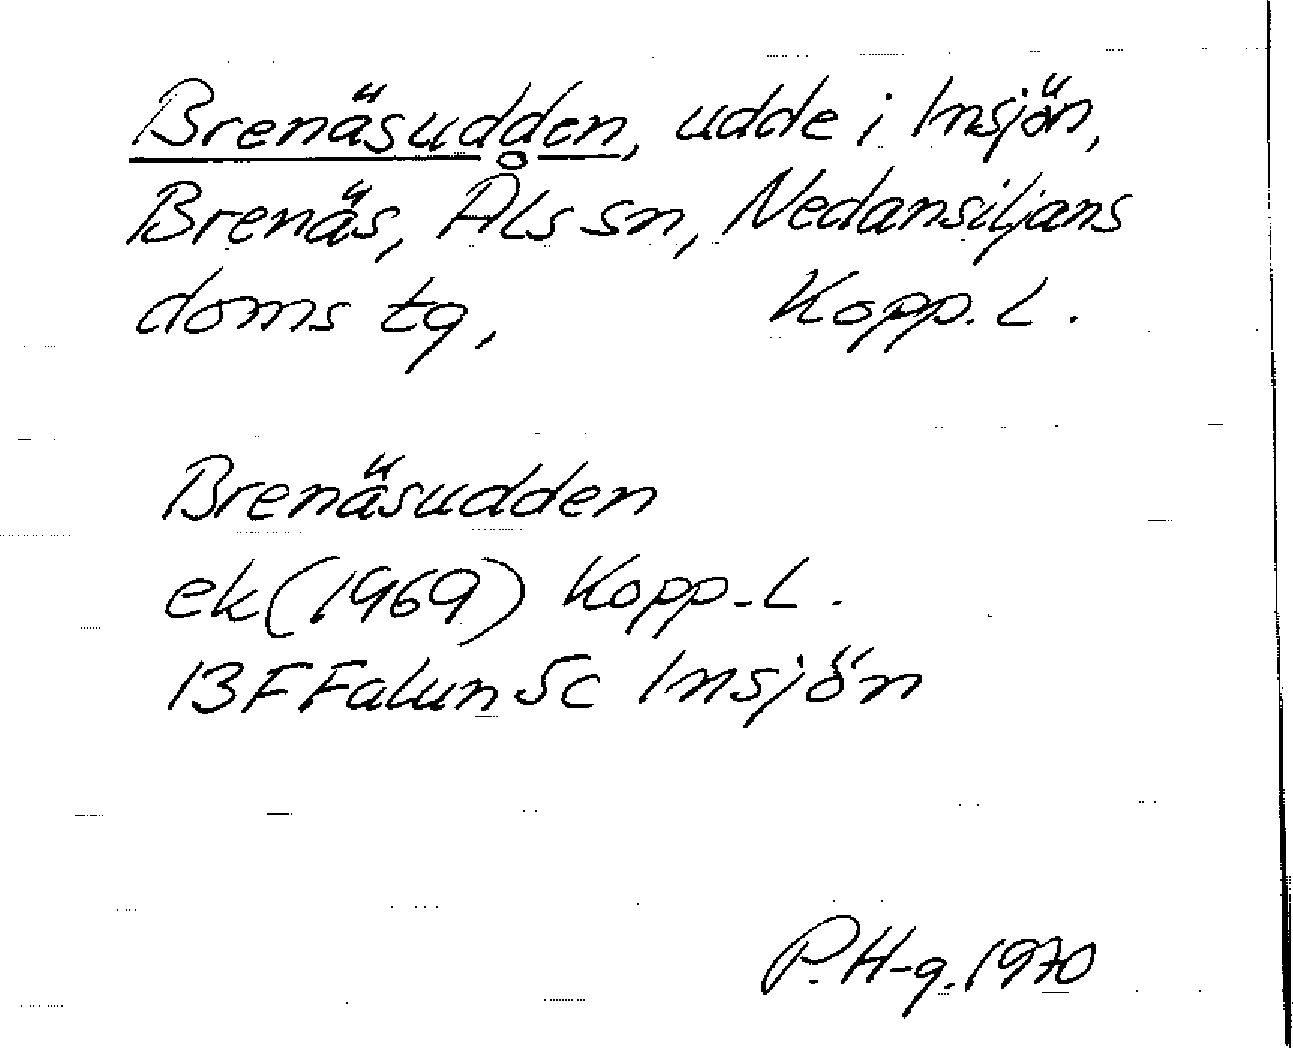 Brenäsudden, udde i Insjön,
Brenäs, Åls sn, Nedansiljans
doms tg, Kopp. L.
Brenäsudden
ek (1969) Kopp. L.
13F Falun 5c Insjön
P. H-g. 1970